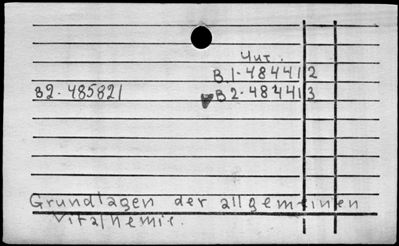 Чит.
B.1-484412
B2-485821 B2-484413
Grundlagen der allgemeinen
Vitalhemie.